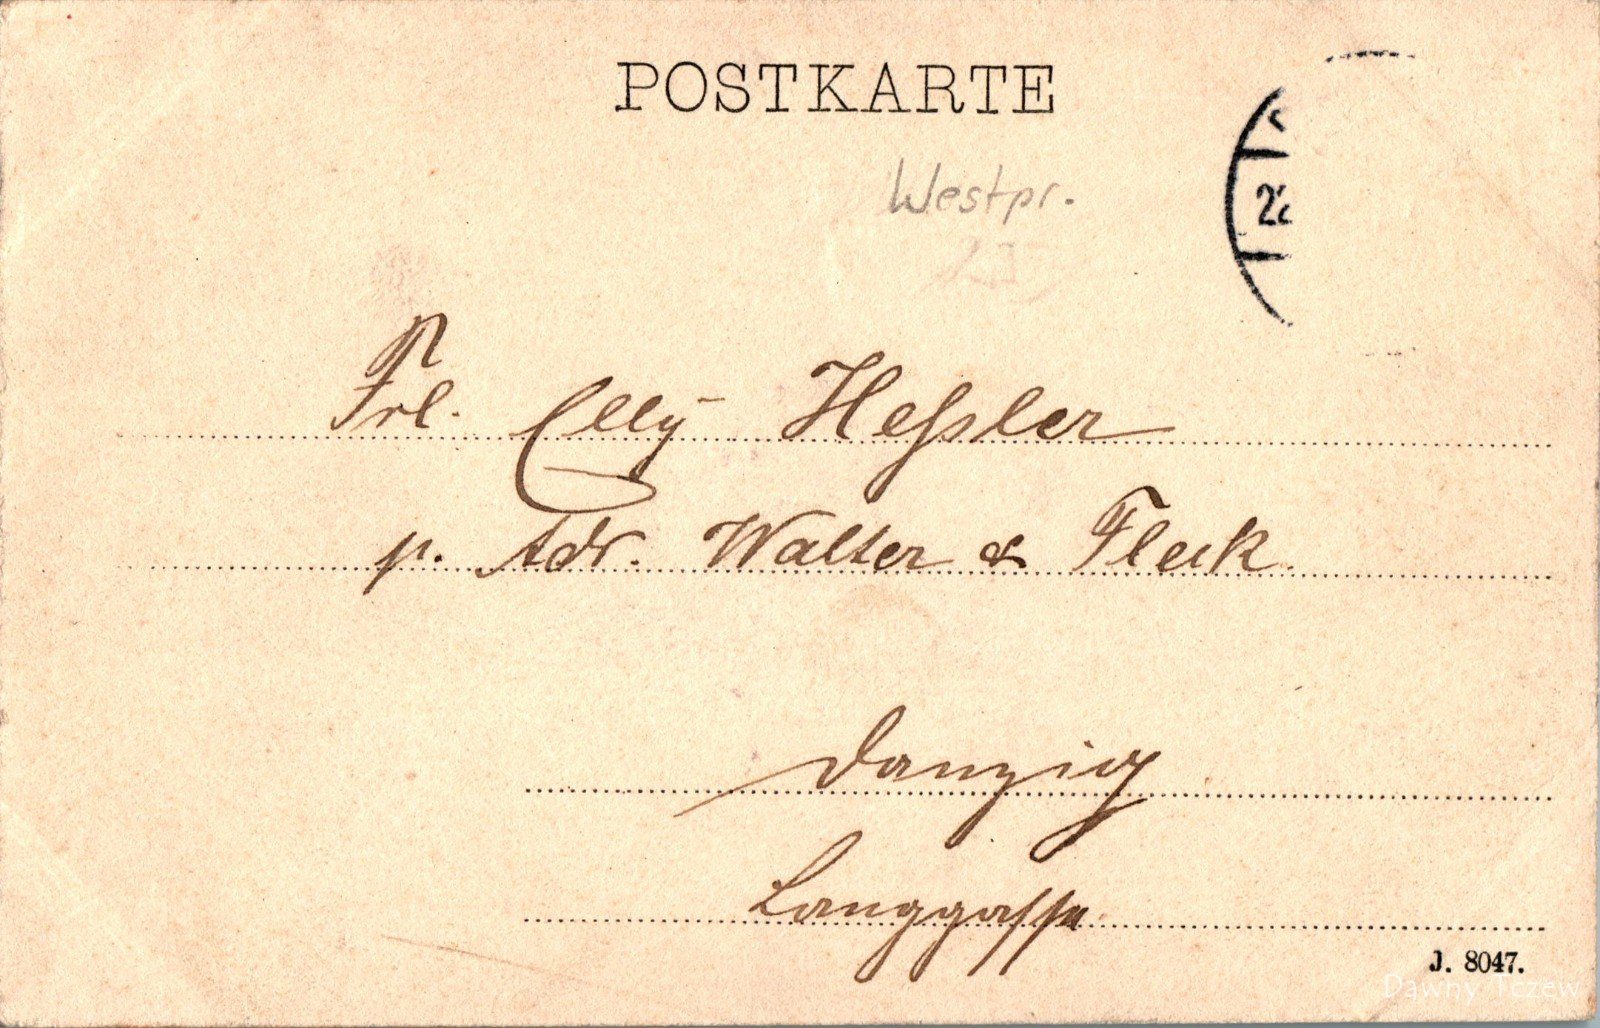 POSTKARTE
Westpr.
22
Frl. Elly Heßler
p. Adr. Walter & Fleck
Danzig
Langgasse
J. 8047.
Dawny Tczew